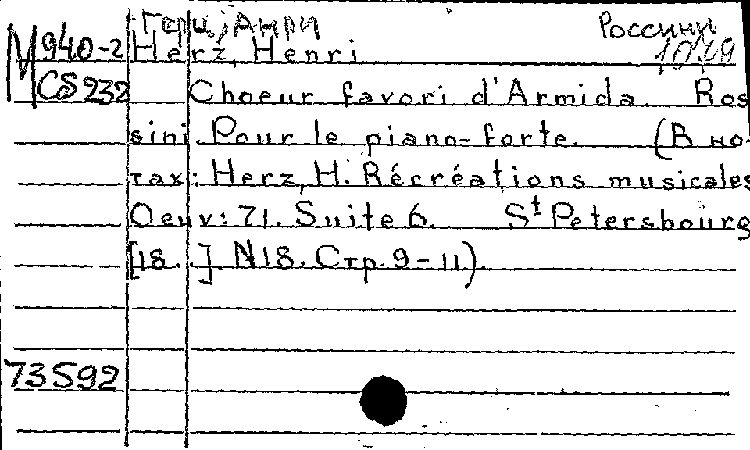 Герц, Анри Россини
М 940-2 Herz, Henri 1049
CS 232 Choeur favori d'Armida. Ros
sini. Pour le piano-forte. (В но-
тах: Herz, H. Récréations musicales
Oeuv: 71. Suite 6. St Petersbourg
[18..] N18. Стр. 9-11).
73592